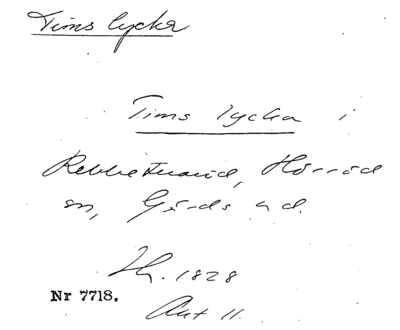 Tims lycka
Tims lycka i
Rebbetuaröd, Hörröd
sn, Gärds hd.
Lh. 1828
Nr 7718.
Akt 11.